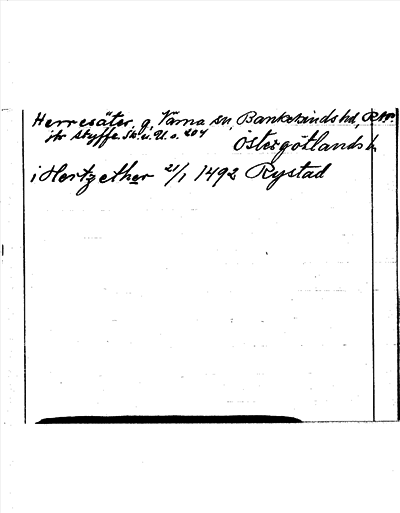 Herresäter, g, Värna sn, Bankekinds hd,
jfr Styffe Sk. u. U. s. 204
Östergötlands l.
i Hertzether 2/1 1492 Rystad